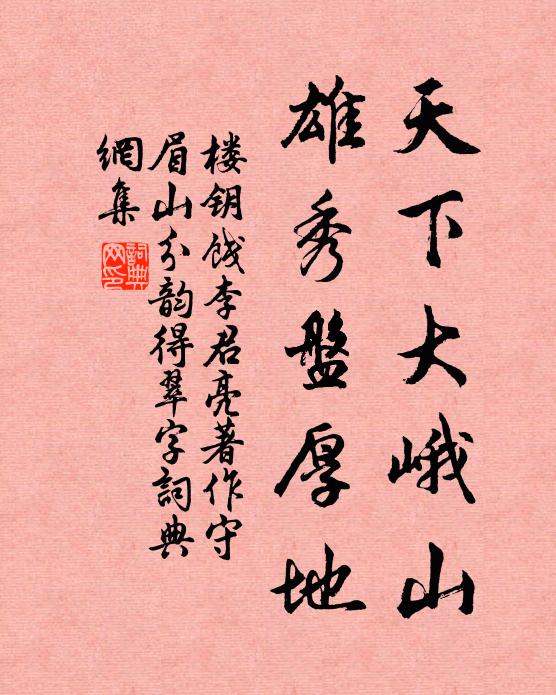 天下大峨山
雄秀盤厚地
楼钥饯李君亮著作守
眉山分韵得翠字詞典
網集
詞典
网印